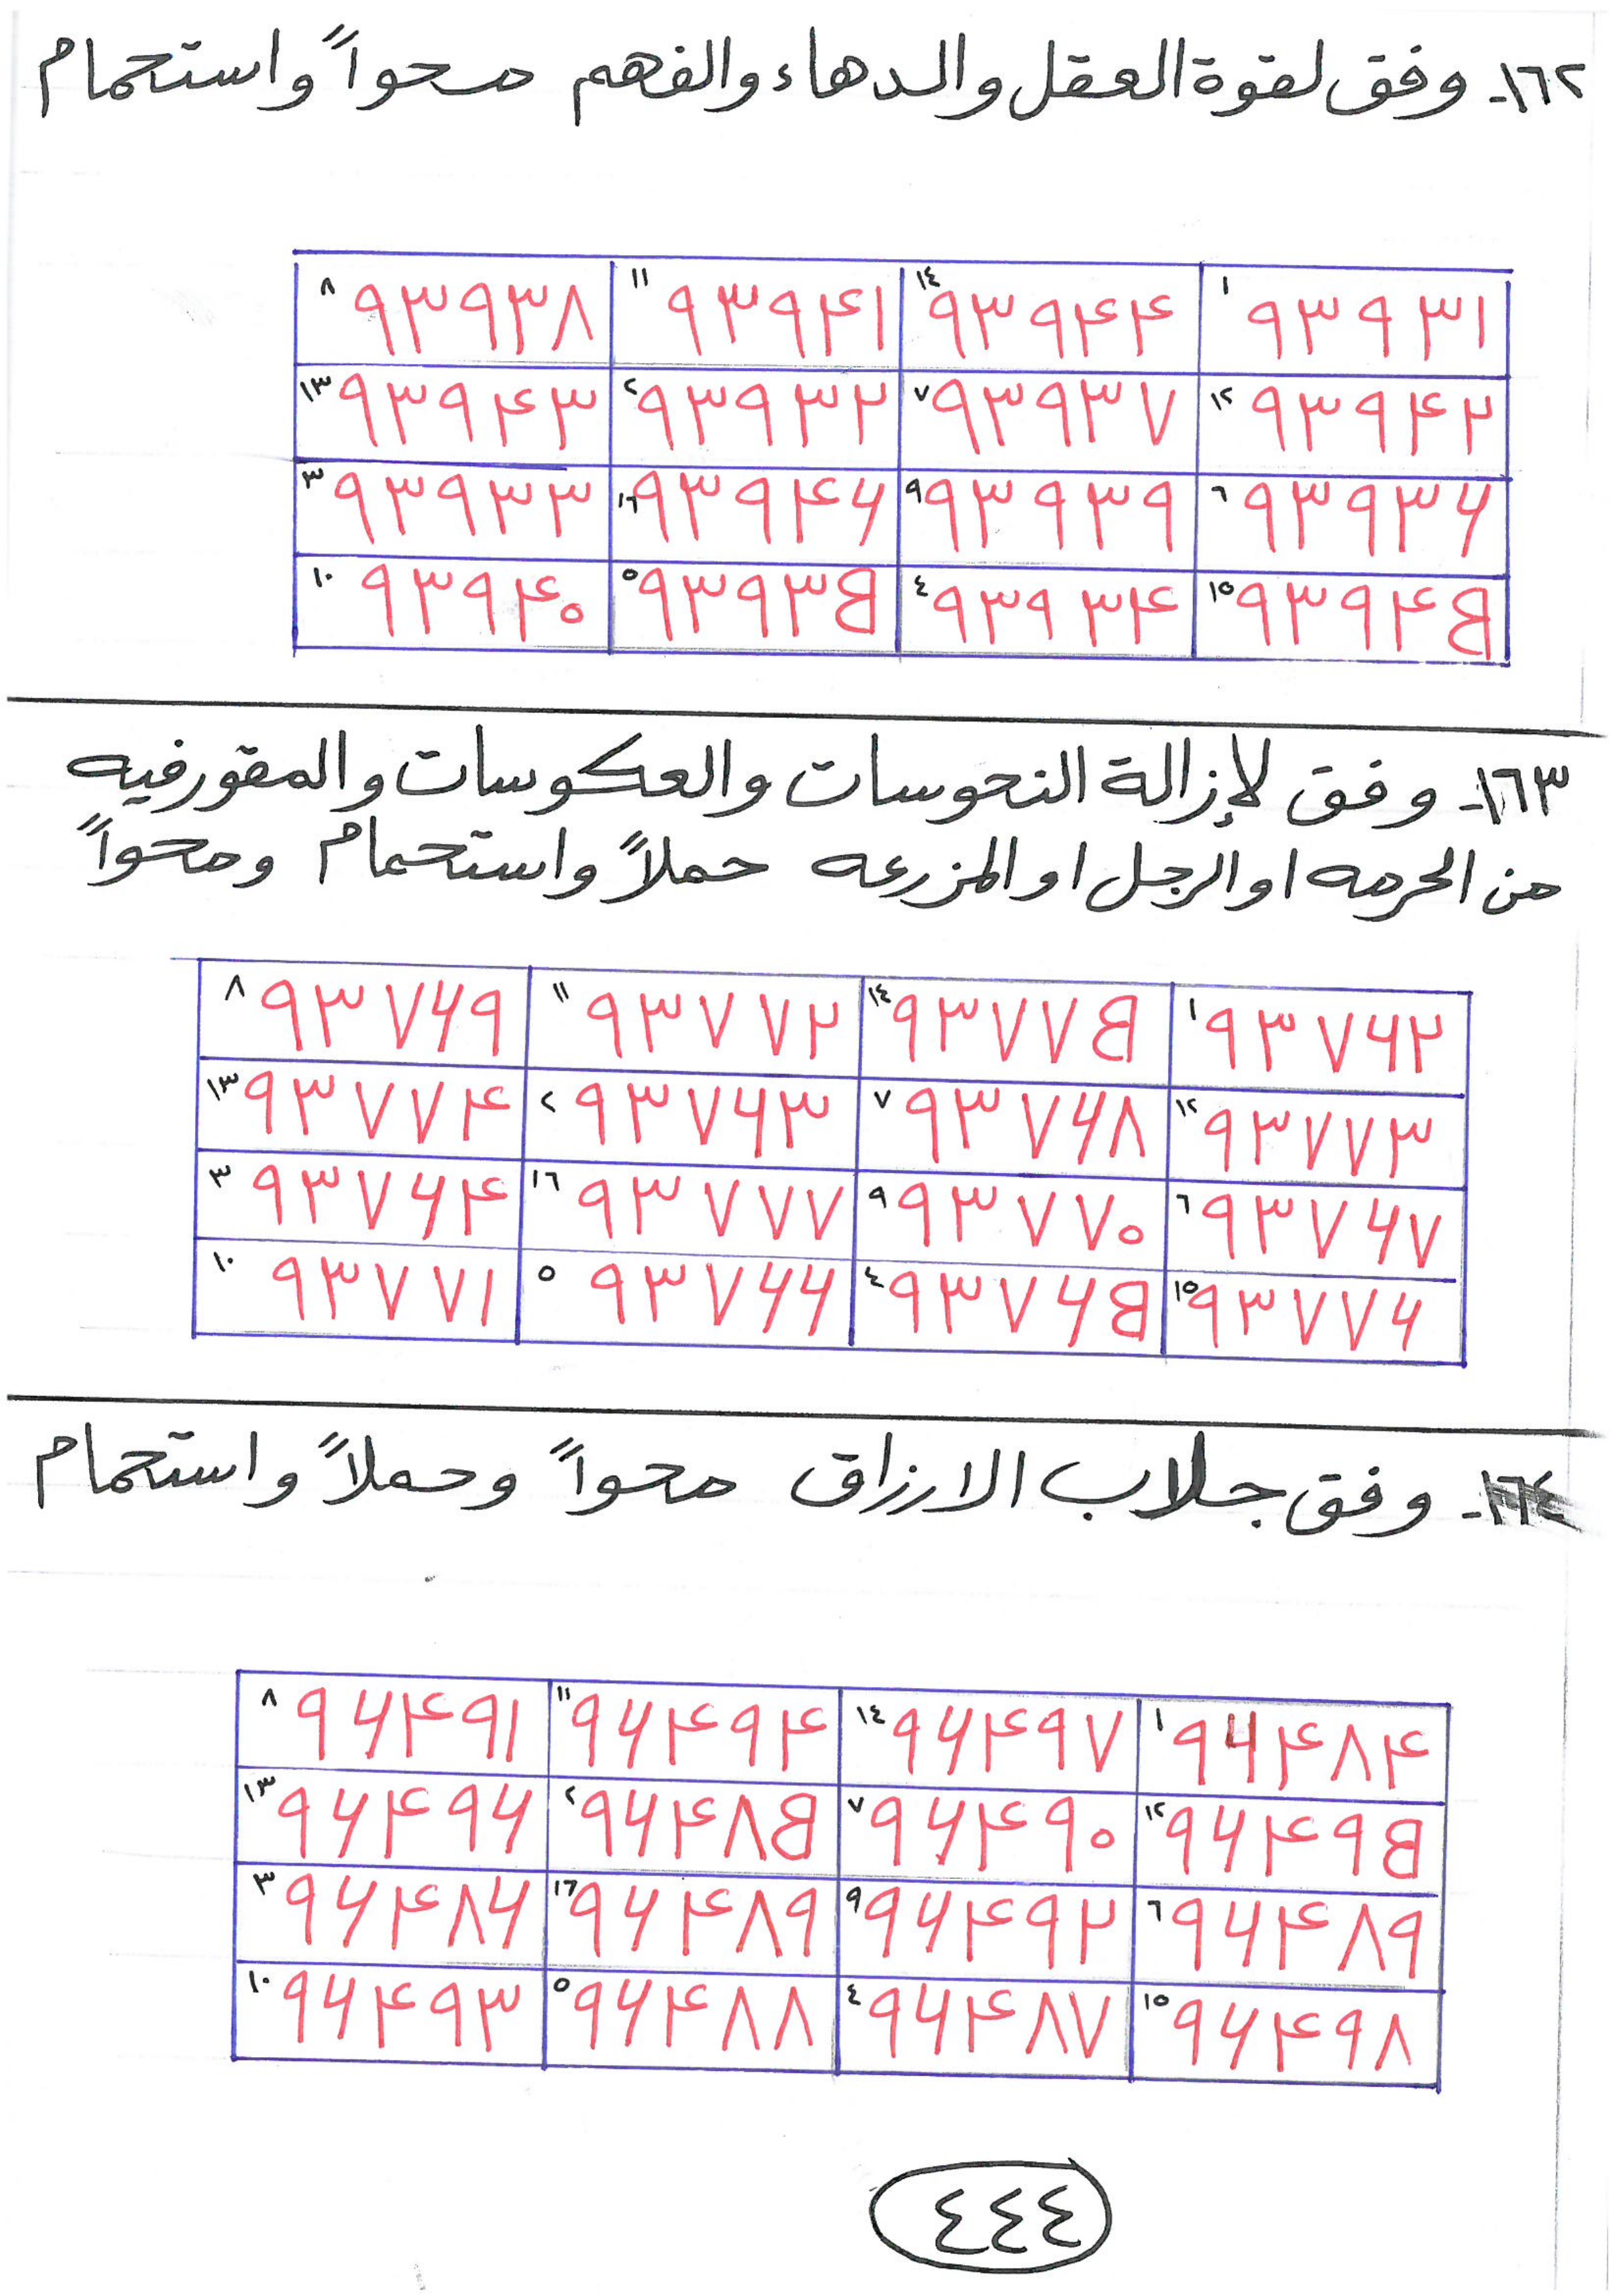 ١٦٢- وفق لقوة العقل والدهاء والفهم محواً واستحمام
٨ ٩٣٩٣٨ ١١ ٩٣٩۴١ ١٤ ٩٣٩۴۴ ١ ٩٣٩٣١
١٣ ٩٣٩۴٣ ٢ ٩٣٩٣٢ ٧ ٩٣٩٣٧ ١٢ ٩٣٩۴٢
٣ ٩٣٩٣٣ ١٦ ٩٣٩۴۶ ٩ ٩٣٩٣٩ ٦ ٩٣٩٣۶
١٠ ٩٣٩۴٠ ٥ ٩٣٩٣B ٤ ٩٣٩٣۴ ١٥ ٩٣٩۴B
١٦٣- وفق لإزالة النحوسات والعكوسات والمقورفيه
من الحرمه او الرجل او المزرعه حملاً واستحمام ومحواً
٨ ٩٣٧۶٩ ١١ ٩٣٧٧٢ ١٤ ٩٣٧٧B ١ ٩٣٧۶٢
١٣ ٩٣٧٧۴ ٢ ٩٣٧۶٣ ٧ ٩٣٧۶٨ ١٢ ٩٣٧٧٣
٣ ٩٣٧۶۴ ١٦ ٩٣٧٧٧ ٩ ٩٣٧٧٠ ٦ ٩٣٧۶٧
١٠ ٩٣٧٧١ ٥ ٩٣٧۶۶ ٤ ٩٣٧۶B ١٥ ٩٣٧٧۶
١٦٤- وفق جلاب الارزاق محواً وحملاً واستحمام
٨ ٩۶۴٩١ ١١ ٩۶۴٩۴ ١٤ ٩۶۴٩٧ ١ ٩۶۴٨۴
١٣ ٩۶۴٩۶ ٢ ٩۶۴٨B ٧ ٩۶۴٩٠ ١٢ ٩۶۴٩B
٣ ٩۶۴٨۶ ١٦ ٩۶۴٨٩ ٩ ٩۶۴٩٢ ٦ ٩۶۴٨٩
١٠ ٩۶۴٩٣ ٥ ٩۶۴٨٨ ٤ ٩۶۴٨٧ ١٥ ٩۶۴٩٨
٤٤٤